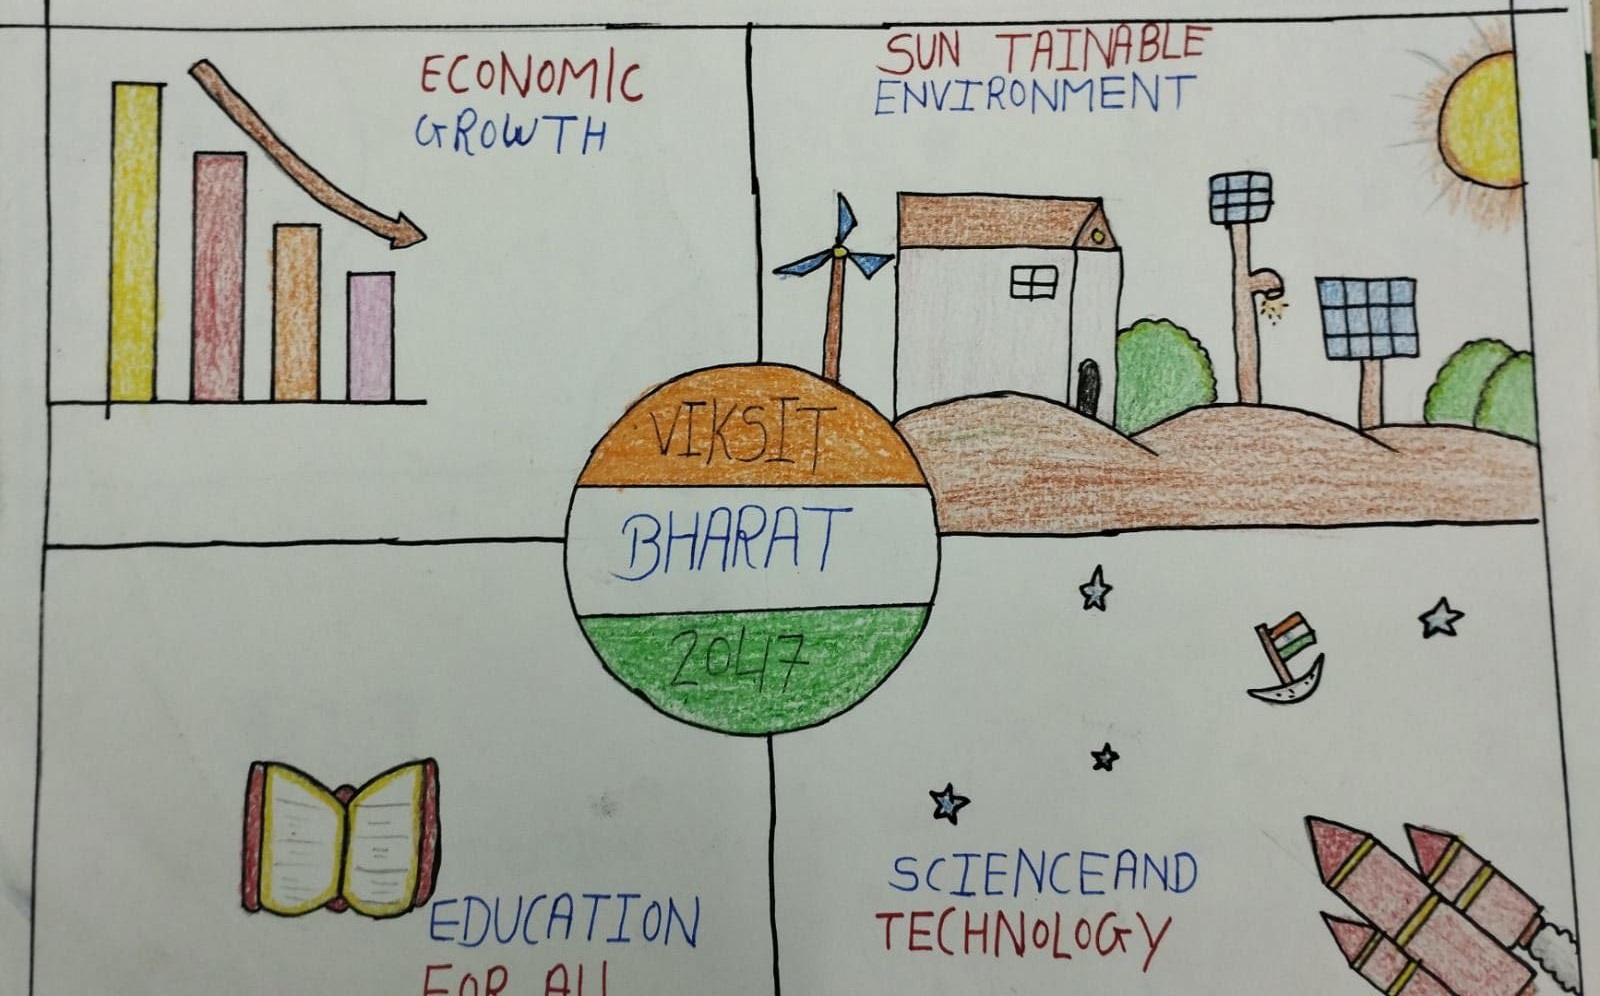 ECONOMIC
GROWTH
SUN TAINABLE
ENVIRONMENT
VIKSIT
BHARAT
2047
EDUCATION
FOR ALL
SCIENCE AND
TECHNOLOGY